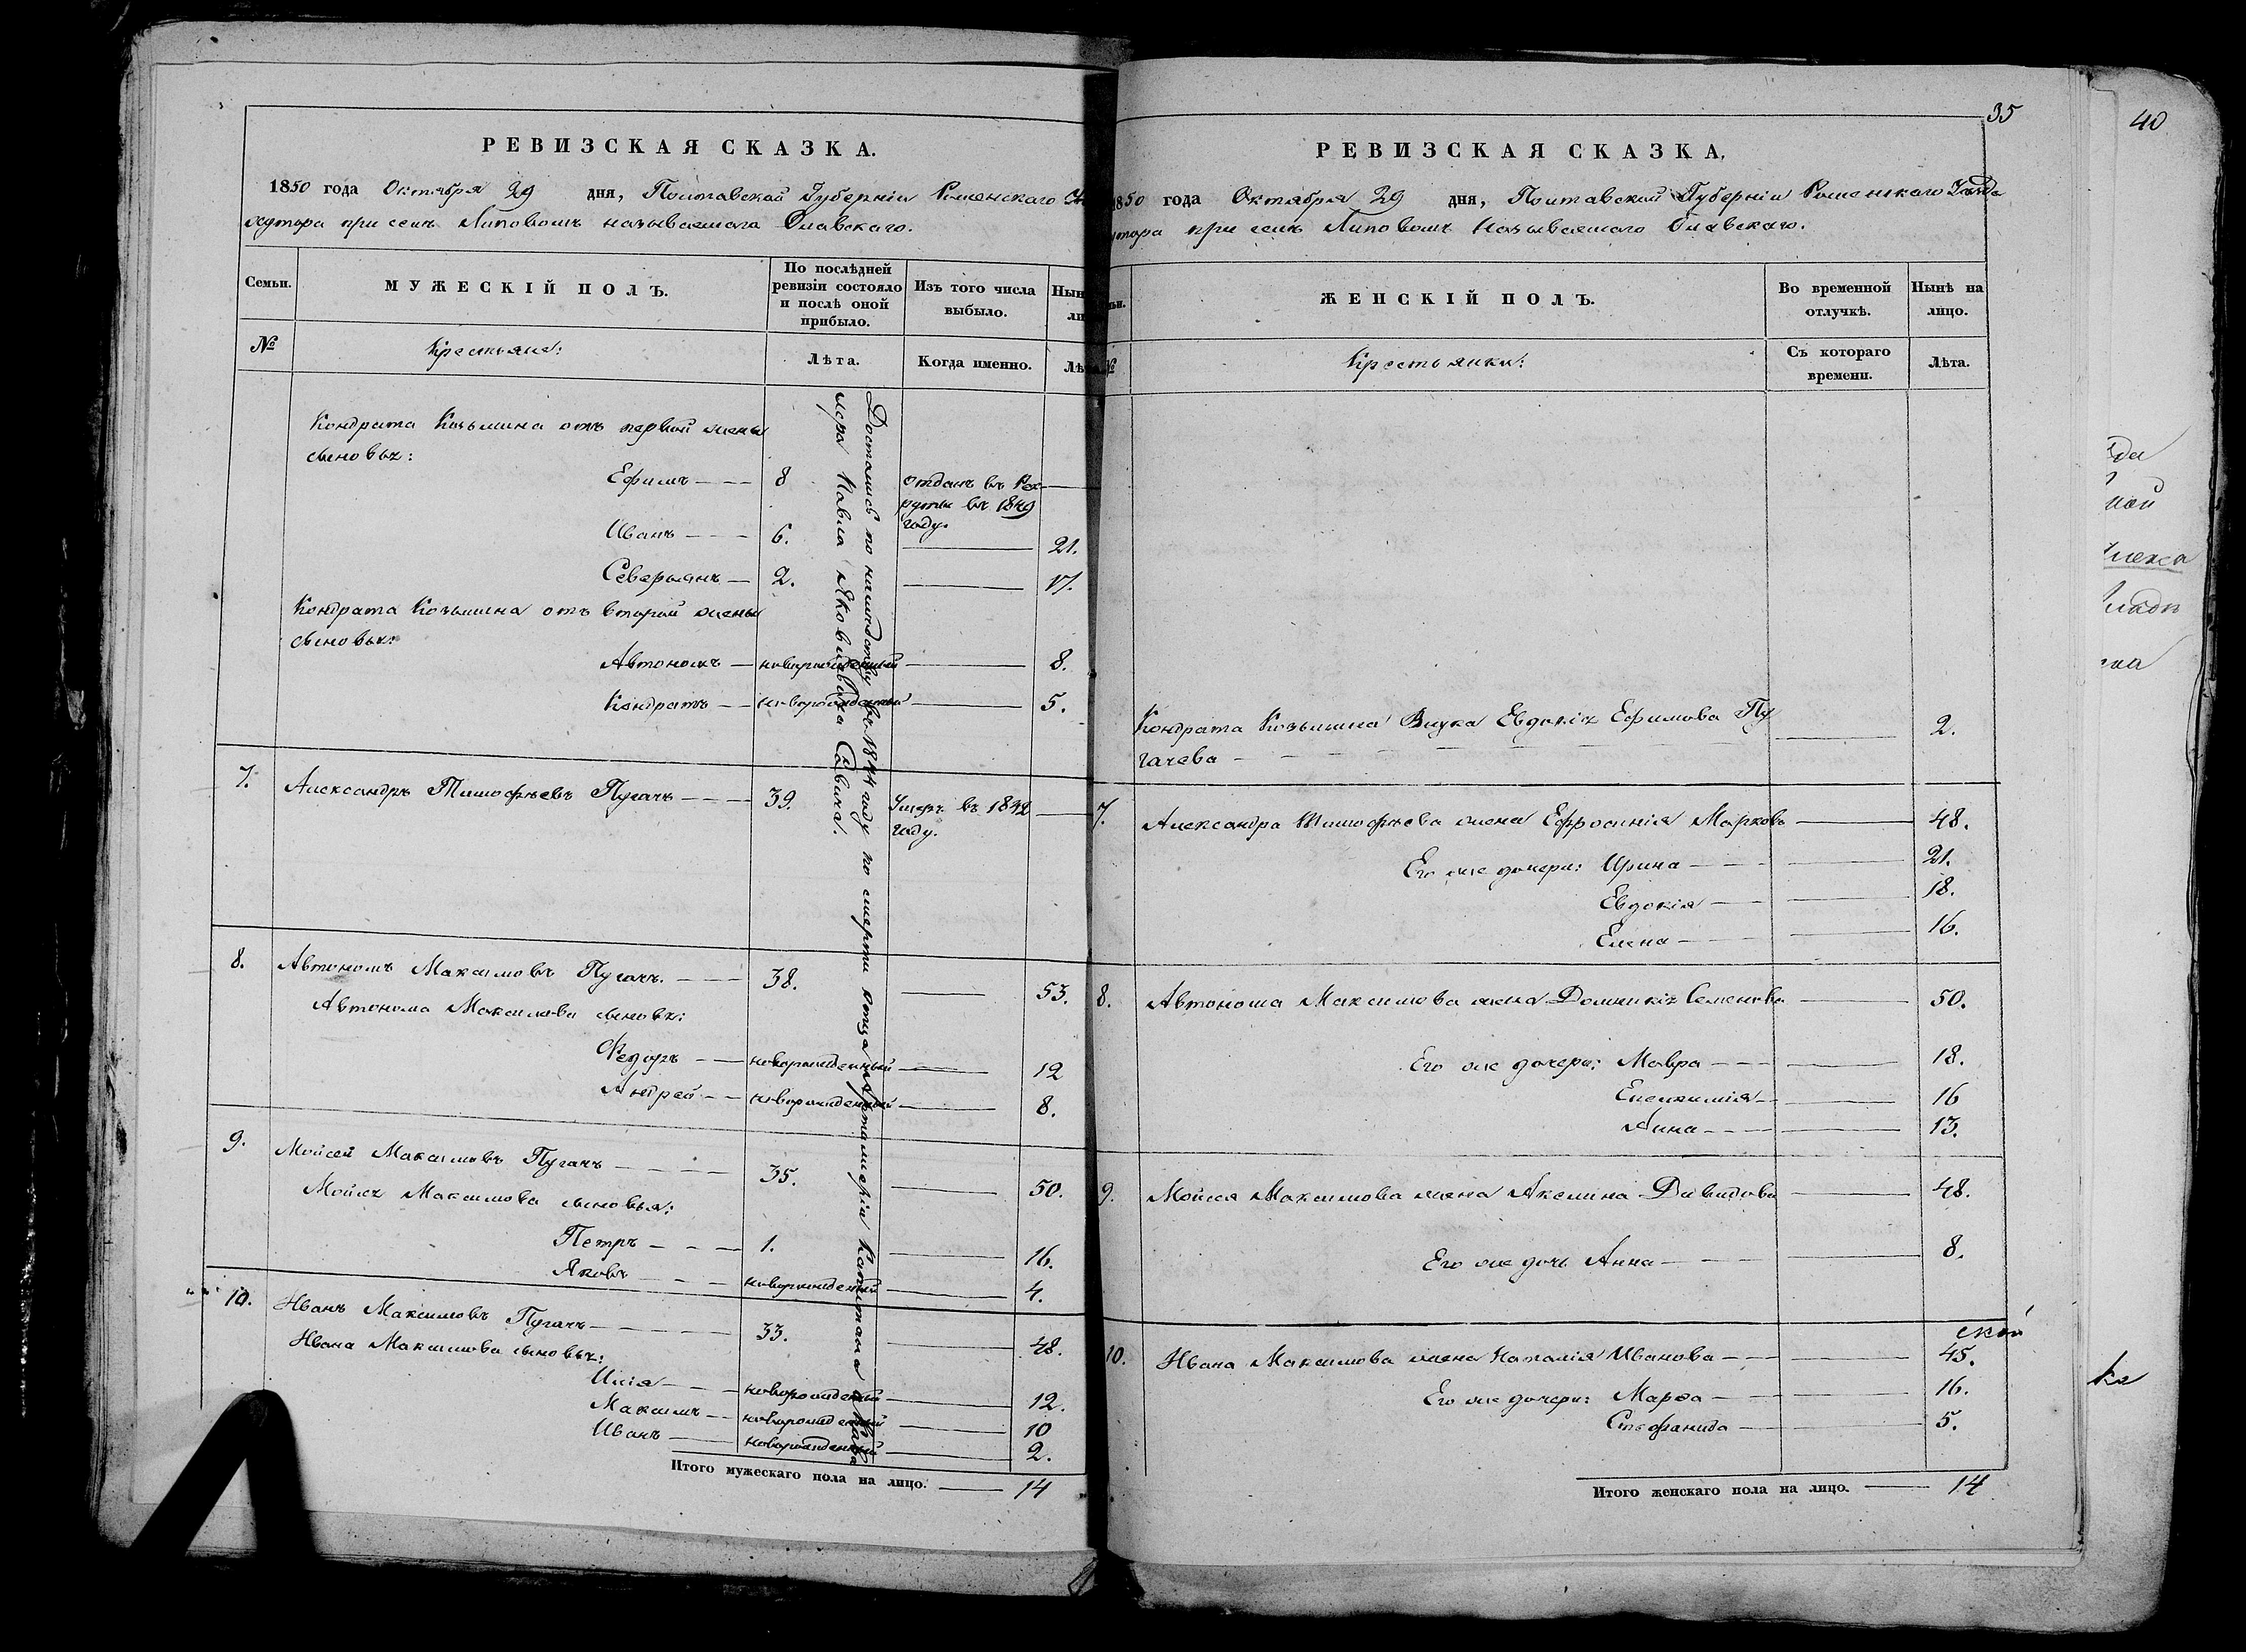 РЕВИЗСКАЯ СКАЗКА.
1850 года Октября 29 дня, Полтавской Губерніи Роменскаго
хутора при селѣ Липовомъ называемаго Славскаго.
Семьи.
МУЖЕСКІЙ ПОЛЪ.
По послѣдней
ревизіи состояло
и послѣ оной
прибыло.
Изъ того числа
выбыло.
Нын
ли
№
Крестьяне:
Лѣта.
Когда именно.
Лѣ
Кондрата Козьмина отъ первой жены
сыновья:
Ефимъ — 8 отданъ въ Рек-
руты въ 1849
году.
Иванъ — 6. — 21.
Северьянъ — 2. — 17.
Кондрата Козьмина отъ второй жены
сыновья:
Автономъ — новорожденный — 8.
Кондратъ — новорожденный — 5.
7. Александръ Тимофѣевъ Пугачъ — 39. Умеръ въ 1842
году.
8. Автономъ Максимовъ Пугачъ. — 38. — 53.
Автонома Максимова сыновья:
Федоръ — новорожденный — 12
Андрей — новорожденный — 8.
9. Мойсей Максимовъ Пугачъ — 35. — 50.
Мойсея Максимова сыновья:
Петръ — 1. — 16.
Яковъ — новорожденный — 4.
10. Иванъ Максимовъ Пугачъ — 33. — 48.
Ивана Максимова сыновья:
Илія — новорожденный — 12.
Максимъ — новорожденный — 10
Иванъ — новорожденный — 2.
Итого мужескаго пола на лицо. — 14
Достались по наслѣдству въ 1844 году по смерти отца Артиллеріи Капитана
Павла Яковлевича Савича.
35
РЕВИЗСКАЯ СКАЗКА.
1850 года Октября 29 дня, Полтавской Губерніи Роменскаго Уѣзда
утора при селѣ Липовомъ Называемаго Славскаго.
ьи.
ЖЕНСКІЙ ПОЛЪ.
Во временной
отлучкѣ.
Нынѣ на
лицо.
№
Крестьянки:
Съ котораго
времени.
Лѣта.
Кондрата Козьмина Внука Евдокія Ефимова Пу
гачева — 2.
7. Александра Тимофѣева жена Ефросинія Маркова — 48.
Его же дочери: Ирина — 21.
Евдокія — 18.
Елена — 16.
8. Автонома Максимова жена Домникія Семенова — 50.
Его же дочери: Мавра — 18.
Епистимія — 16
Анна — 13.
9. Мойсея Максимова жена Акилина Давидова — 48.
Его же дочь Анна — 8.
10. Ивана Максимова жена Наталія Иванова — 45.
Его же дочери: Марѳа — 16.
Стефанида — 5.
Итого женскаго пола на лицо. — 14
40